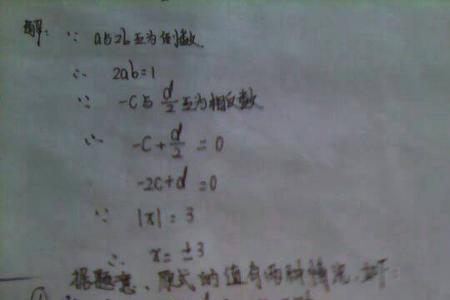 解: ∵ a与2b互为倒数
∴ 2ab=1
∵ -c与d/2互为相反数
∴ -c+d/2=0
-2c+d=0
∵ |x|=3
∴ x=±3
据题意、原式的值有两种情况,
①